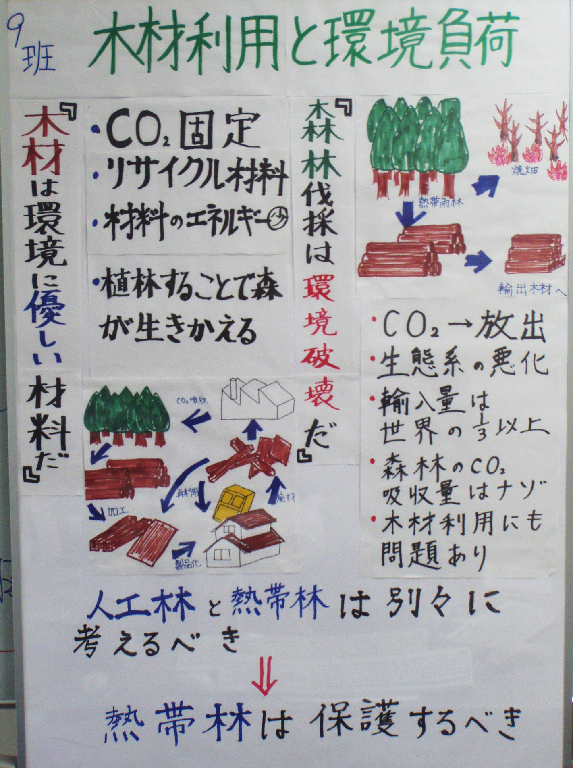 9班
木材利用と環境負荷
『木材は環境に優しい材料だ』
・CO₂固定
・リサイクル材料
・材料のエネルギー㊛
・植林することで森
が生きかえる
CO₂吸収
加工
製品化
再利用
廃材
『森林伐採は環境破壊だ』
熱帯雨林
焼畑
輸出木材へ
・CO₂→放出
・生態系の悪化
・輸入量は
世界の1/3以上
・森林のCO₂
吸収量はナゾ
・木材利用にも
問題あり
人工林と熱帯林は別々に
考えるべき
⇓
熱帯林は保護するべき